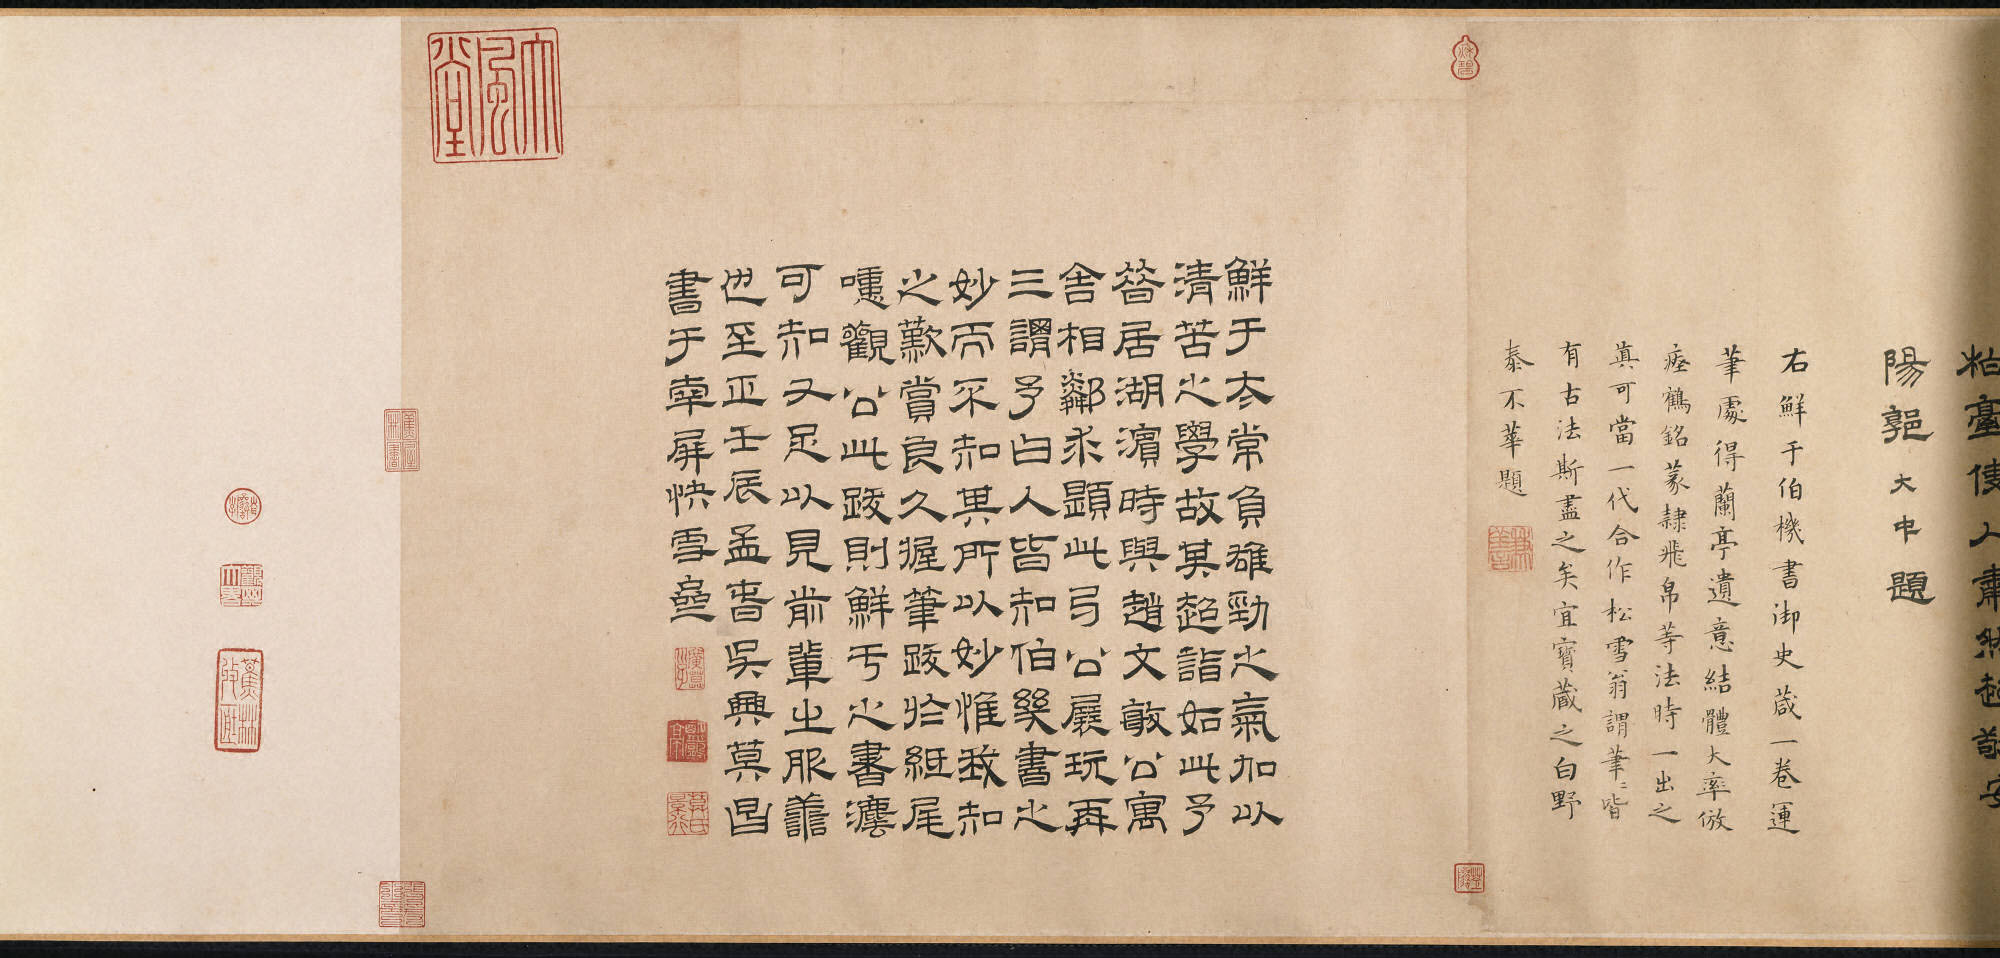 粘臺使人肅然起敬安
陽郭大中題
右鮮于伯機書御史箴一卷運
筆處得蘭亭遺意結體大率倣
瘞鶴銘篆隸飛帛等法時一出之
真可當一代合作松雪翁謂筆〻皆
有古法斯盡之矣宜寶藏之白野
泰不華題
鮮于太常負雄勁之氣加以
清苦之學故其超詣如此予
昔居湖濵時與趙文敏公寓
舍相鄰求顯此弓公展玩再
三謂予曰人皆知伯幾書之
妙而不知其所以妙惟我知
之歎賞良久握筆跋於紙尾
嘑觀公此跋則鮮于之書瀍
可知又足以見前輩之服譱
也至正壬辰孟春吳興莫昌
書于南屏快雪齋
大風堂